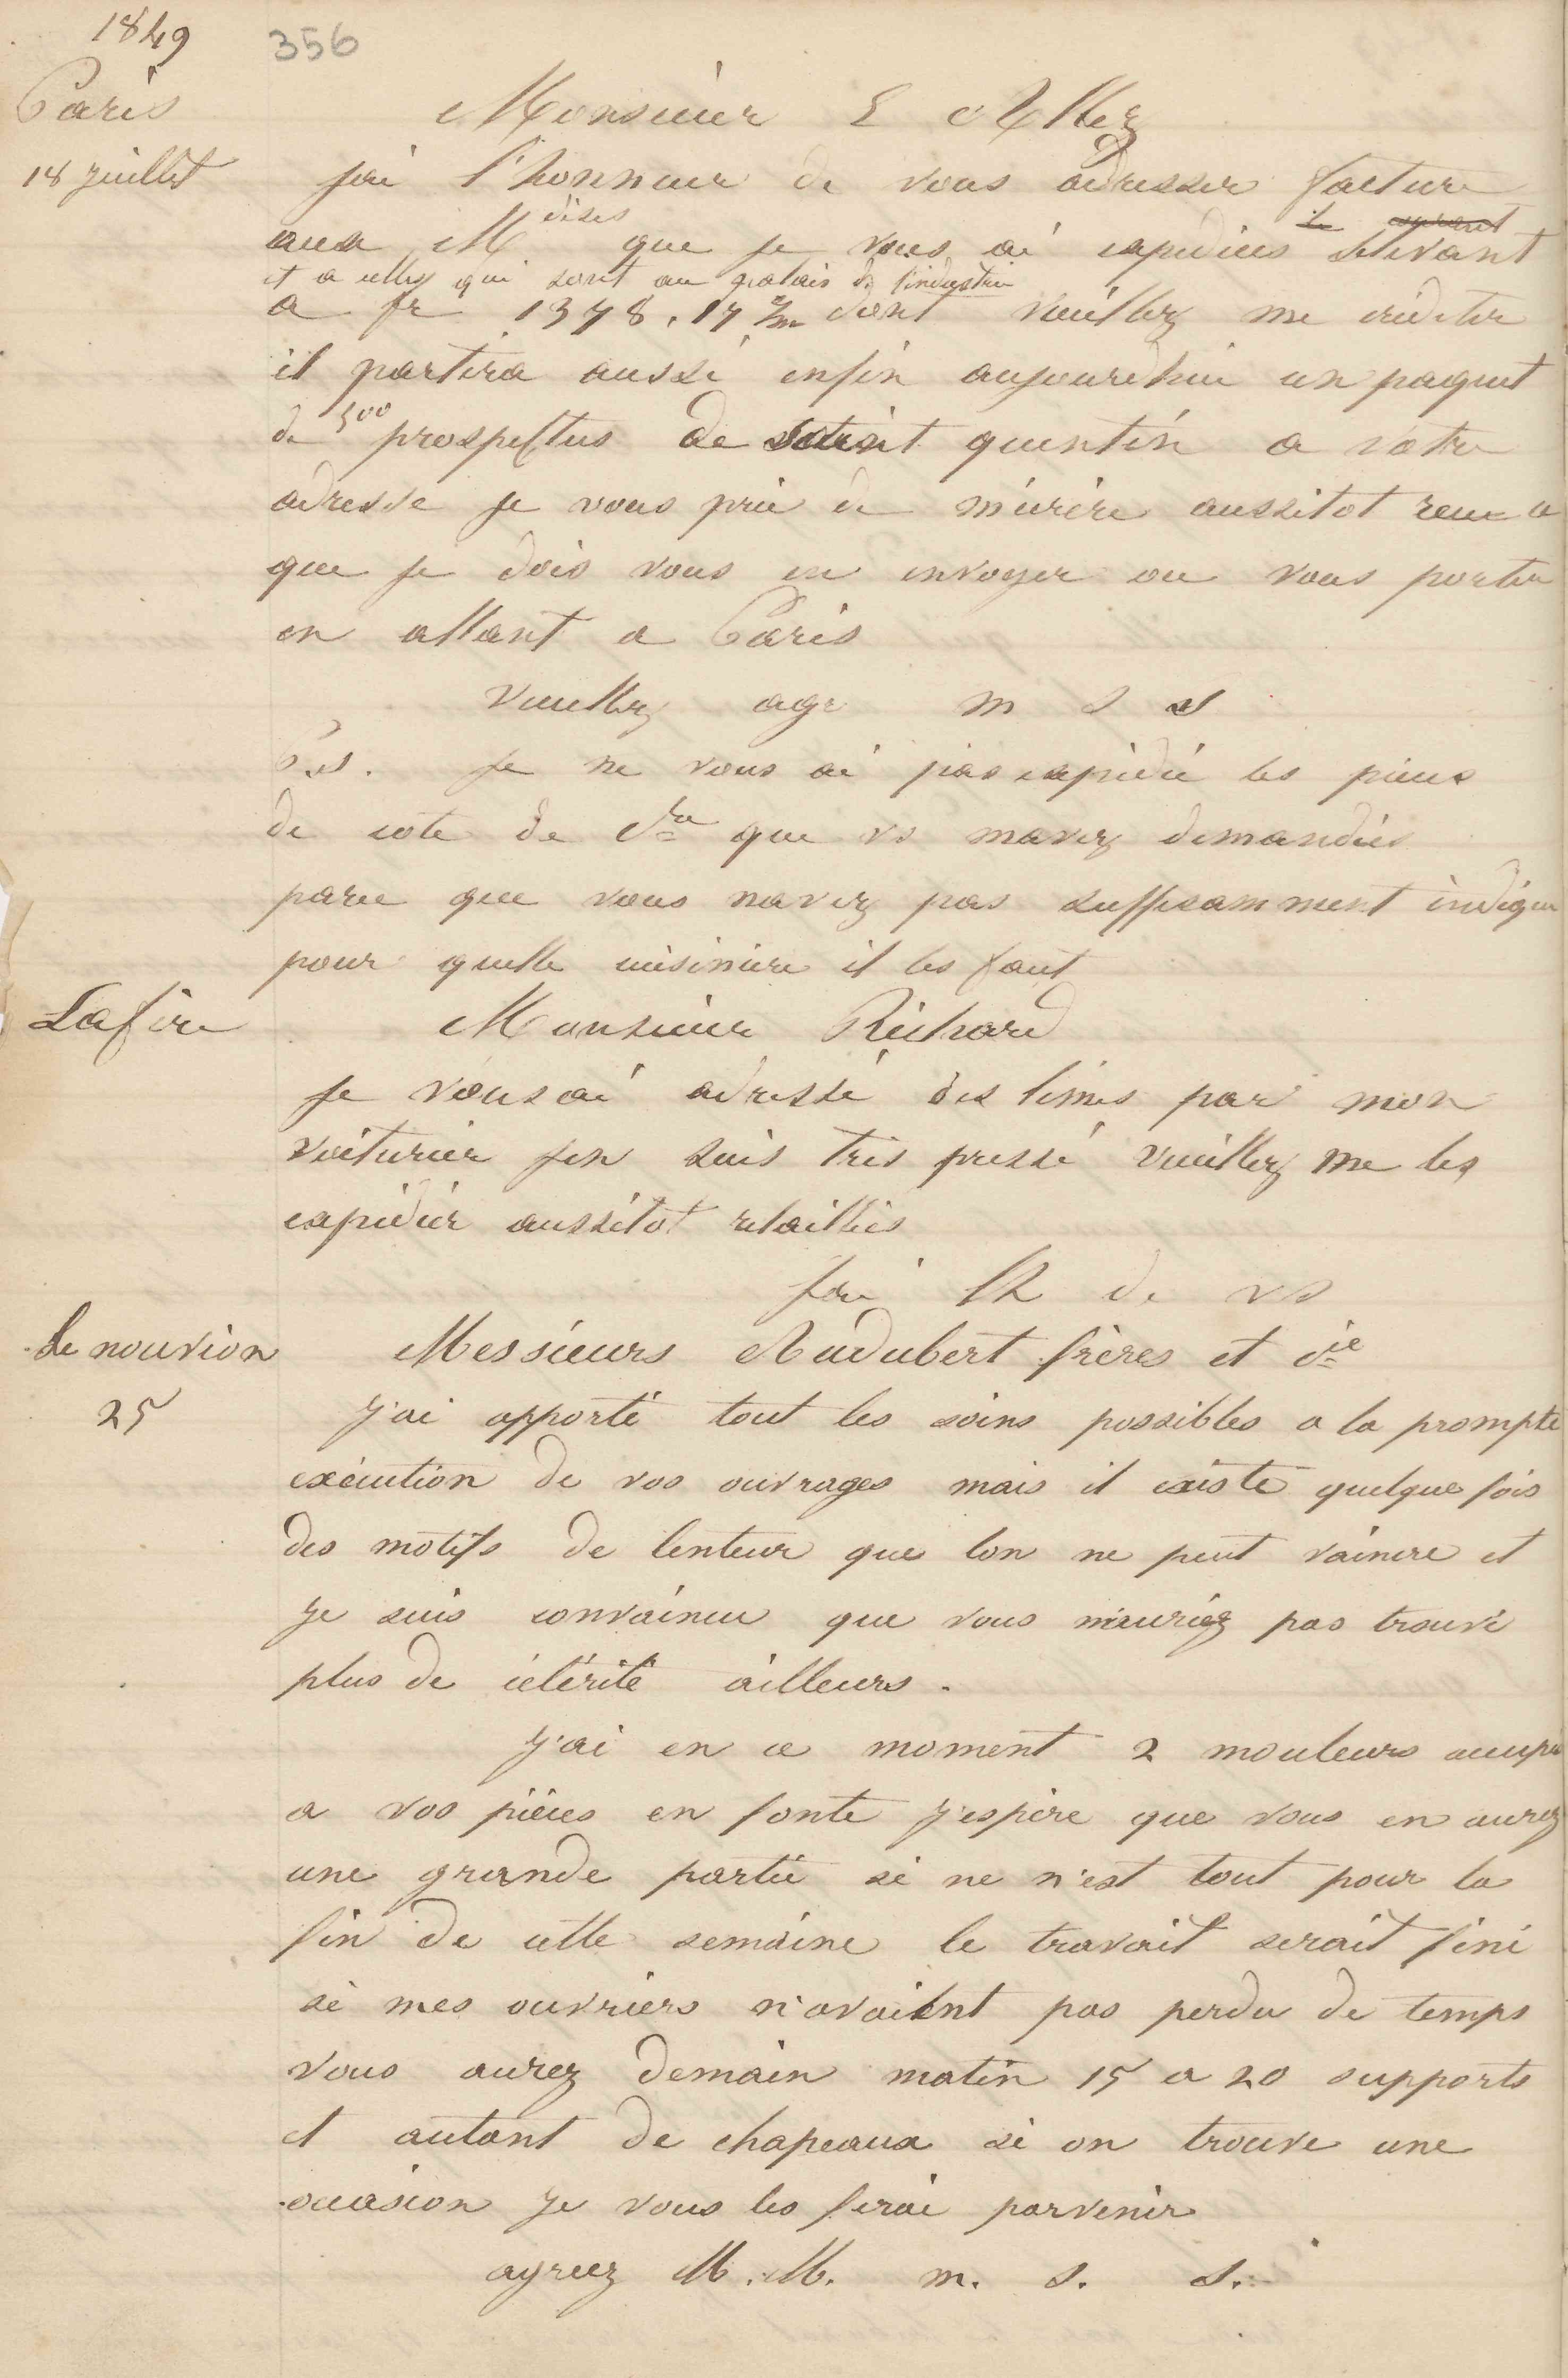 1849
356
Paris
18 juillet
Monsieur E Allez
jai l'honneur de vous adresser facture
aux M dises que je vous ai expédiées se levant
et a celles qui sont au palais de l'industrie
a fr 1378.17 dont veuillez me créditer
il partira aussi enfin aujourdhui un paquet
de 500 prospectus de saint quentin a votre
adresse je vous prie de mécrire aussitot recu a
que je dois vous en envoyer ou vous porter
en allant a Paris
veuillez agr m s s
P.s. je ne vous ai pas expédié les pieces
de coté de que vs mavez demandées
parce que vous navez pas suffisamment indiqué
pour quelle cuisiniere il les faut
Lafère
Monsieur Richard
je vous ai adressé des limes par mon
voiturier jen suis très pressé veuillez me les
expédier aussitot retaillées
jai lh de vs
Le nouvion
25
Messieurs Audubert frères et Cie
j'ai apporté tout les soins possibles a la prompte
exécution de vos ouvrages mais il existe quelque fois
des motifs de lenteur que lon ne peut vaincre et
je suis convaincu que vous n'auriez pas trouvé
plus de célérité ailleurs.
j'ai en ce moment 2 mouleurs occupés
a vos pièces en fonte j'espère que vous en aurez
une grande partie si ne n'est tout pour la
fin de cette semaine le travail serait fini
si mes ouvriers n'avaient pas perdu de temps
vous aurez demain matin 15 a 20 supports
et autant de chapeaux si on trouve une
occasion je vous les ferai parvenir
agreez M. M. m. s. s.